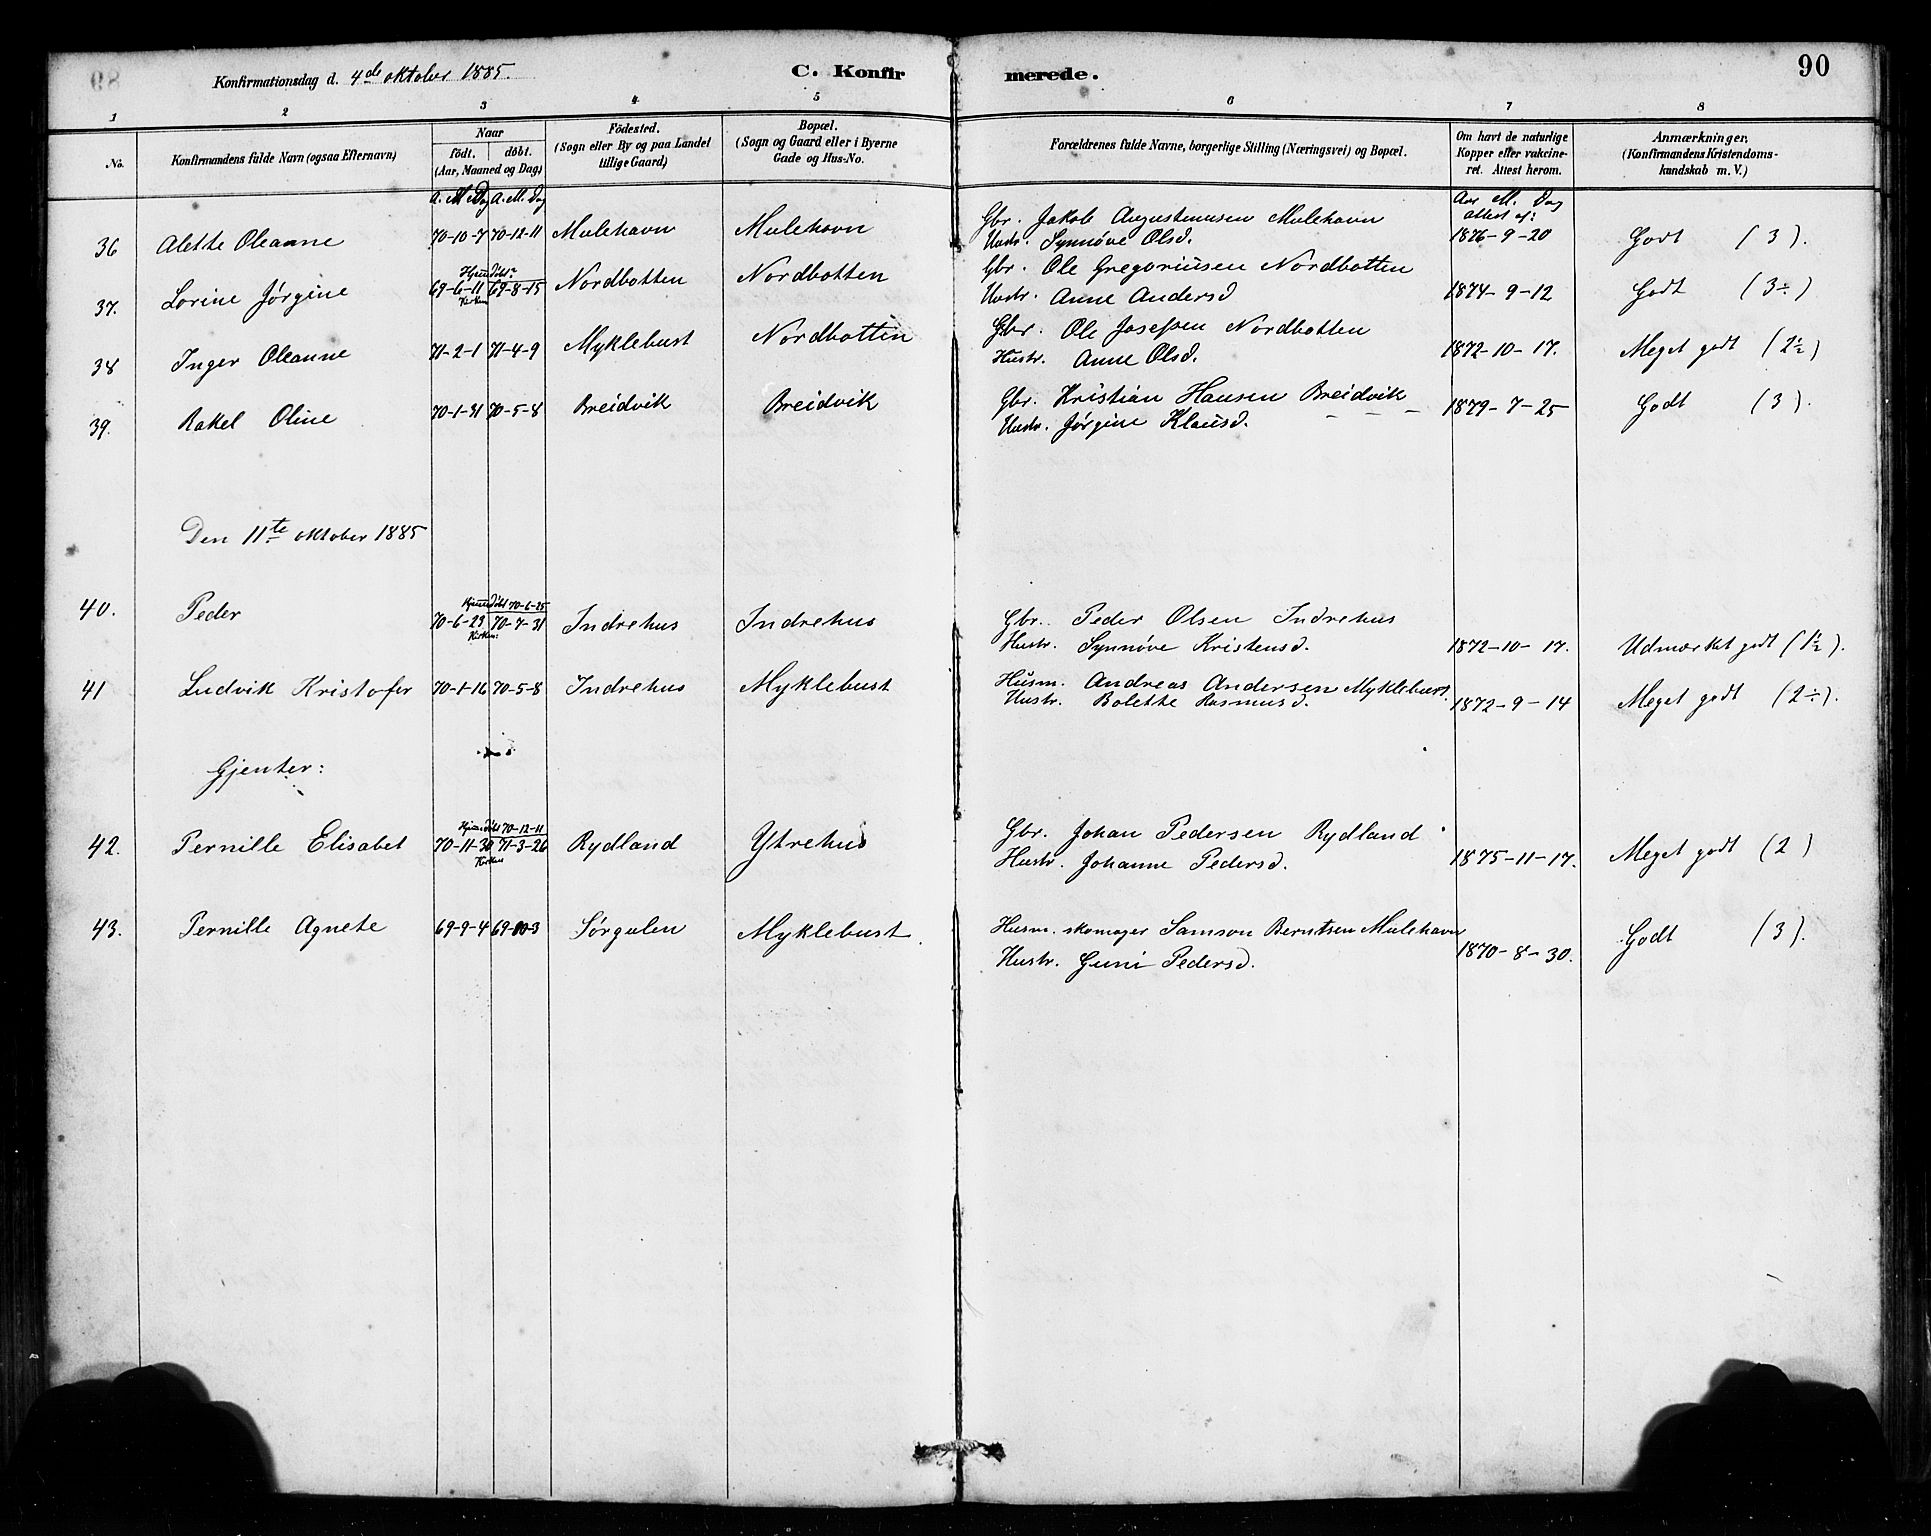 Konfirmationsdag d. 4de oktober 1885. C. Konfirmerede. 90
1 2 3 4 5 6 7 8
No. Konfirmandens fulde Navn (ogsaa Efternavn) Naar født. døbt. (Aar, Maaned og Dag) Födested. (Sogn eller By og paa Landet tillige Gaard) Bopæl. (Sogn og Gaard eller i Byerne Gade og Hus-No. Forældrenes fulde Navne, borgerlige Stilling (Næringsvei) og Bopæl. Om havt de naturlige Kopper eller vakcineret. Attest herom. Anmærkninger, (Konfirmandens Kristendomskundskab m. V.)
A. M. Dag A. M. Dag Aar M. Dag
attest af:
36 Alette Oleanne 70-10-7 70-12-11 Mulehavn Mulehavn Gbr. Jakob Augustinusen Mulehavn
Hustr. Synnøve Olsd. 1876-9-20 Godt (3).
37. Lorine Jørgine Hjemdøbt? 69-6-11 69-8-15 Kirken Nordbotten Nordbotten Gbr. Ole Gregoriusen Nordbotten
Hustr. Anne Andersd 1874-9-12 Godt (3÷)
38 Inger Oleanne 71-2-1 71-4-9 Myklebust Nordbotten Gbr. Ole Josefsen Nordbotten
Hustr. Anne Olsd. 1872-10-17. Meget godt (2½)
39. Rakel Oline 70-1-31 70-5-8 Breidvik Breidvik Gbr. Kristian Hansen Breidvik
Hustr. Jørgine Klausd. - - - 1879-7-25 Godt (3).
Den 11te oktober 1885
40. Peder Hjemdøbt 70-6-25
70-6-23 70-7-31 Kirken: Indrehus Indrehus Gbr. Peder Olsen Indrehus
Hustr. Synnøve Kristensd. 1872-10-17. Udmærket godt (1½).
41 Ludvik Kristofer 70-1-16 70-5-8 Indrehus Myklebust Husm. Andreas Andersen Myklebust.
Hustr. Bolette Rasmusd. 1872-9-14 Meget godt (2÷).
Gjenter:
42. Pernille Elisabet Hjemdøbt 70-12-11
70-11-30 71-3-26 Kirken Rydland Ytrehus Gbr. Johan Pedersen Rydland
Hustr. Johanne Pedersd. 1875-11-17. Meget godt (2)
43. Pernille Agnete 69-9-4 69-10-3 Sørgulen Myklebust. Husm. skomager Samson Berntsen Mulehavn
Hustr. Guni Pedersd. 1870-8-30. Godt (3).